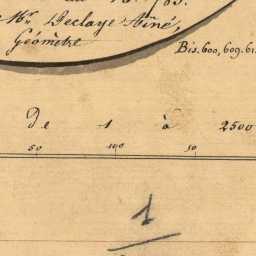 Mr. Declaye Aîné,
Géomètre
Bis. 600, 609. 61
De 1 à 2500
50 100 50
1